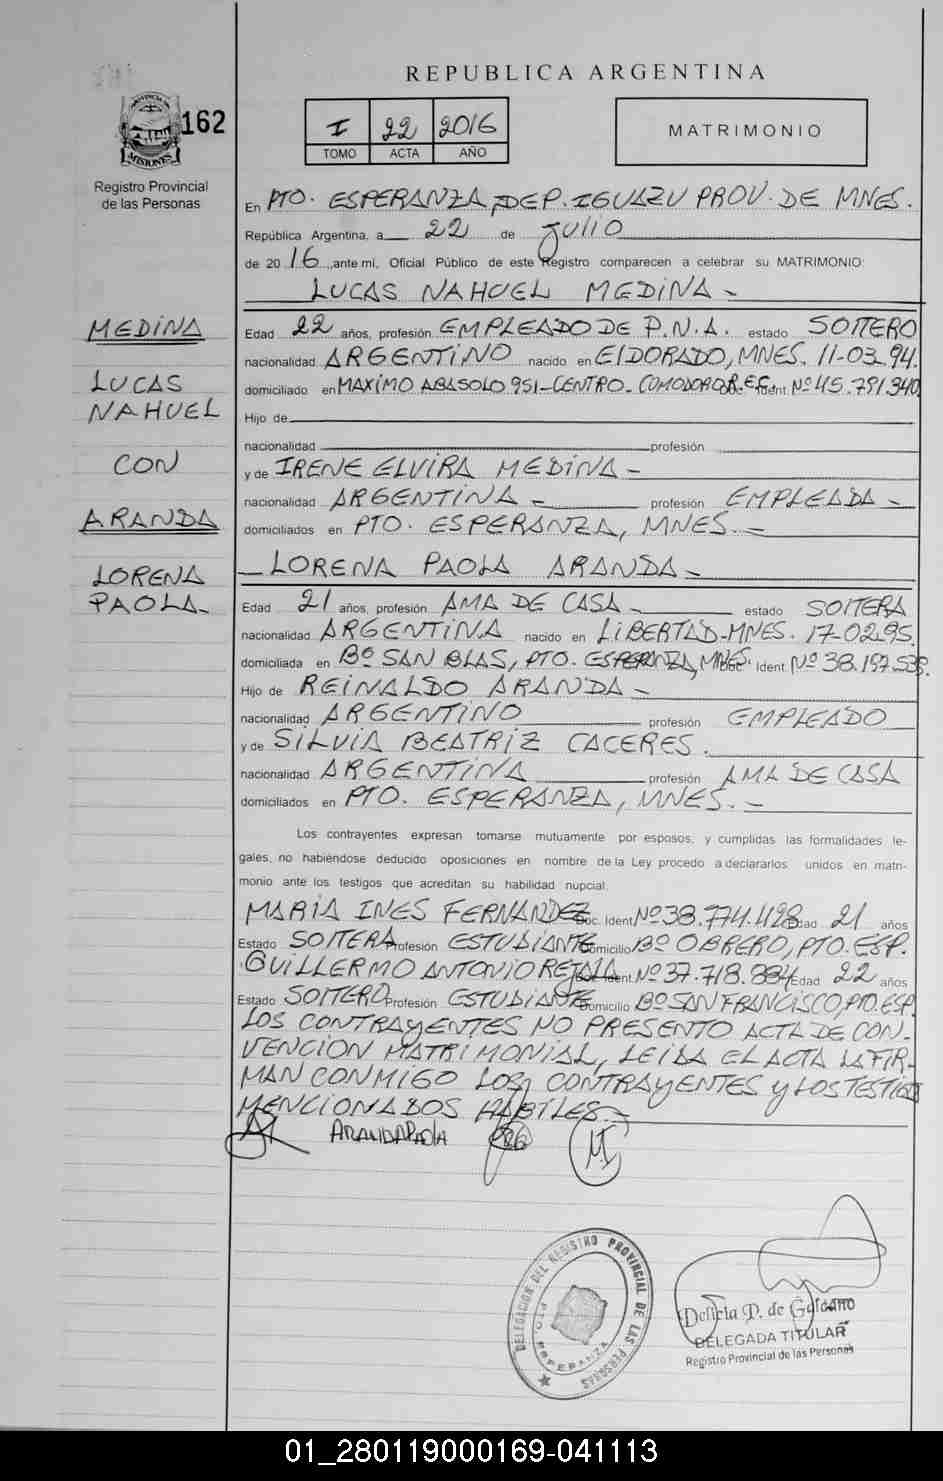 REPUBLICA ARGENTINA
162
I 22 2016
TOMO ACTA AÑO
MATRIMONIO
PROVINCIA DE
MISIONES
Registro Provincial
de las Personas
En PTO. ESPERANZA, DEP. IGUAZU PROV. DE MNES.
República Argentina, a 22 de Julio
de 2016, ante mí, Oficial Público de este Registro comparecen a celebrar su MATRIMONIO:
LUCAS NAHUEL MEDINA -
MEDINA
LUCAS
NAHUEL
CON
ARANDA
LORENA
PAOLA-
Edad 22 años, profesión EMPLEADO DE P.N.A. estado SOLTERO
nacionalidad ARGENTINO nacido en ElDORADO, MNES. 11-03.94.
domiciliado en MAXIMO ABASOLO 951-CENTRO. COMODORO R. Doc. Ident Nº 45.791.340
Hijo de
nacionalidad profesión
y de IRENE ELVIRA MEDINA -
nacionalidad ARGENTINA - profesión EMPLEADA -
domiciliados en PTO. ESPERANZA, MNES. -
- LORENA PAOLA ARANDA -
Edad 21 años, profesión AMA DE CASA - estado SOLTERA
nacionalidad ARGENTINA nacido en LIBERTAD-MNES. 17-02.95.
domiciliada en Bº SAN BLAS, PTO. ESPERANZA, MNES. Doc. Ident Nº 38.197.535.
Hijo de REINALDO ARANDA -
nacionalidad ARGENTINO profesión EMPLEADO
y de SILVIA BEATRIZ CACERES.
nacionalidad ARGENTINA profesión AMA DE CASA
domiciliados en PTO. ESPERANZA, MNES. -
Los contrayentes expresan tomarse mutuamente por esposos, y cumplidas las formalidades le-
gales, no habiéndose deducido oposiciones en nombre de la Ley procedo a declararlos unidos en matri-
monio ante los testigos que acreditan su habilidad nupcial.
MARIA INES FERNANDEZ Doc. Ident Nº 38.774.428 Edad 21 años
Estado SOLTERA Profesión ESTUDIANTE Domicilio Bº OBRERO, PTO. ESP.
GUILLERMO ANTONIO REJALA Ident Nº 37.718.884 Edad 22 años
Estado SOLTERO Profesión ESTUDIANTE Domicilio Bº SAN FRANCISCO, PTO. ESP.
LOS CONTRAYENTES NO PRESENTO ACTA DE CON-
VENCION MATRIMONIAL, LEIDA EL ACTA LA FIR-
MAN CONMIGO LOS CONTRAYENTES y LOS TESTIGOS
MENCIONADOS HABILES -
ARANDA PAOLA
DELEGACION DEL REGISTRO PROVINCIAL DE LAS PERSONAS
PTO. ESPERANZA
Delicia D. de Galeano
DELEGADA TITULAR
Registro Provincial de las Personas
01_280119000169-041113